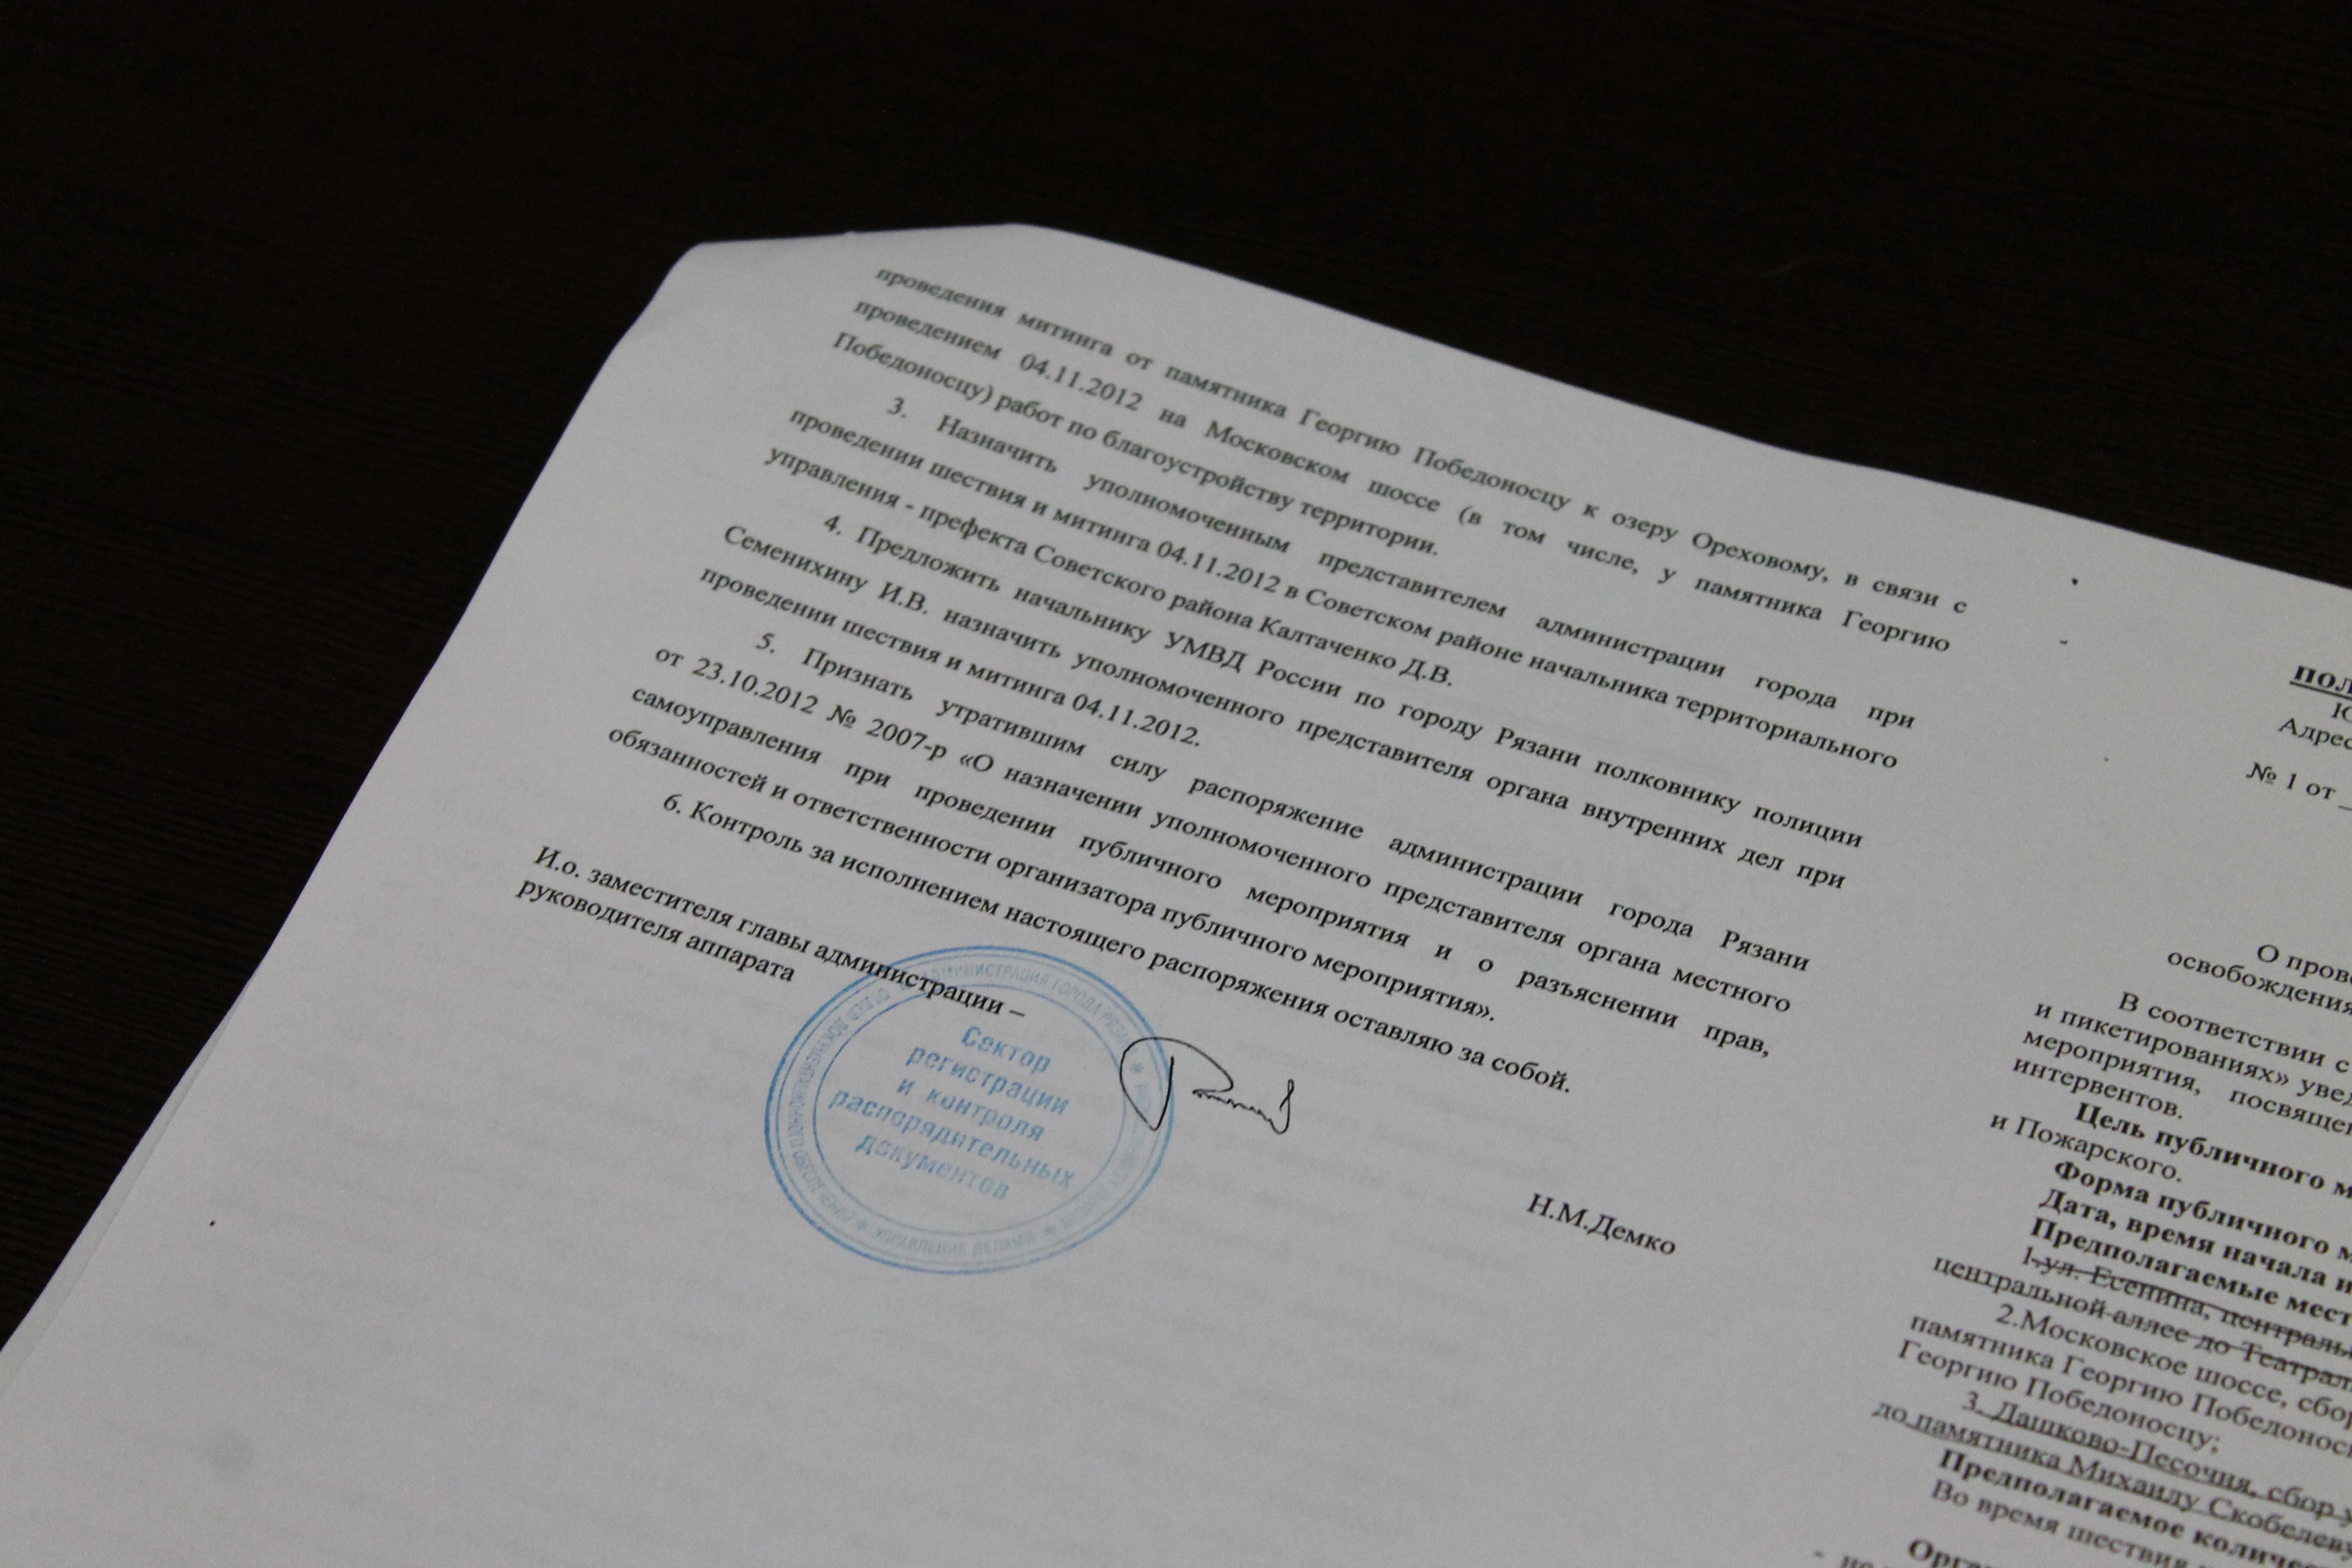 проведения митинга от памятника Георгию Победоносцу к озеру Ореховому, в связи с
проведением 04.11.2012 на Московском шоссе (в том числе, у памятника Георгию
Победоносцу) работ по благоустройству территории.
3. Назначить уполномоченным представителем администрации города при
проведении шествия и митинга 04.11.2012 в Советском районе начальника территориального
управления - префекта Советского района Калтаченко Д.В.
4. Предложить начальнику УМВД России по городу Рязани полковнику полиции
Семенихину И.В. назначить уполномоченного представителя органа внутренних дел при
проведении шествия и митинга 04.11.2012.
5. Признать утратившим силу распоряжение администрации города Рязани
от 23.10.2012 № 2007-р «О назначении уполномоченного представителя органа местного
самоуправления при проведении публичного мероприятия и о разъяснении прав,
обязанностей и ответственности организатора публичного мероприятия».
6. Контроль за исполнением настоящего распоряжения оставляю за собой.
И.о. заместителя главы администрации –
руководителя аппарата
Н.М.Демко
АДМИНИСТРАЦИЯ ГОРОДА
УПРАВЛЕНИЕ ДЕЛАМИ
Сектор
регистрации
и контроля
распорядительных
документов
Адрес
№ 1 от
О пров
освобождения
В соответствии с
и пикетированиях» увед
мероприятия, посвящен
интервентов.
Цель публичного м
и Пожарского.
Форма публичного м
Дата, время начала и
Предполагаемые мест
1.ул. Есенина, централь
центральной аллее до Театрал
2.Московское шоссе, сбор
памятника Георгию Победонос
Георгию Победоносцу;
3. Дашково-Песочня, сбор у
до памятника Михаилу Скобелев
Предполагаемое количес
Во время шествия